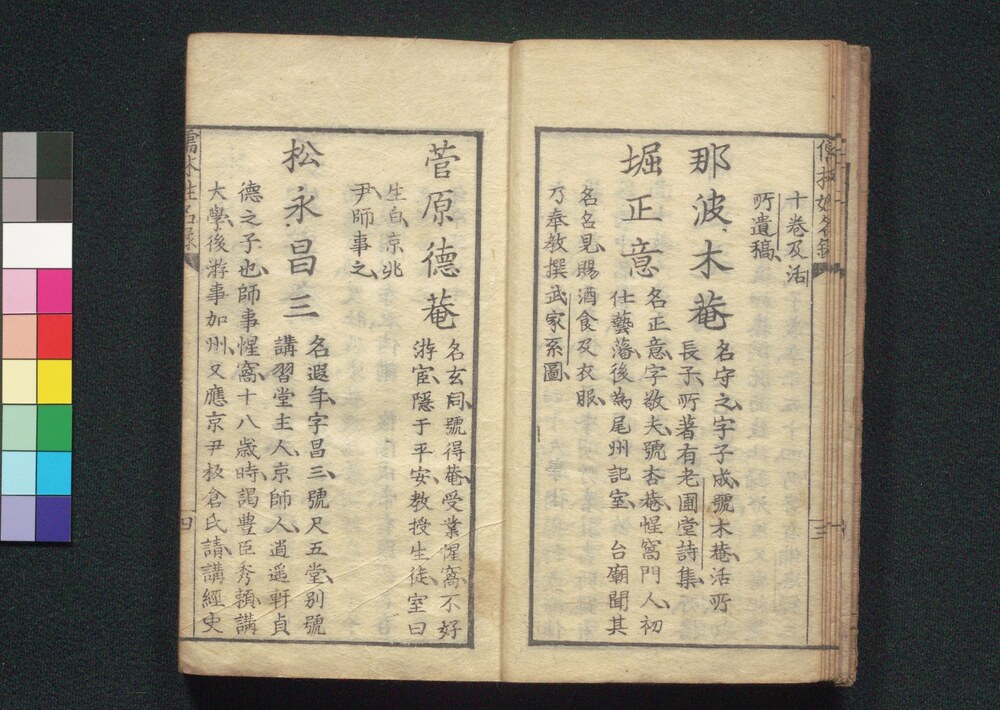 十卷及活
所遺稿
那波木菴
名守之字子成號木菴活所
長子所著有老圃堂詩集
堀正意
名正意字敬夫號杏菴惺窩門人初
仕藝藩後為尾州記室 台廟聞其
名名見賜酒食及衣服
乃奉教撰武家系圖
三
菅原德菴
名玄同號得菴受業惺窩不好
游宦隱于平安教授生徒室曰
生白京兆
尹師事之
松永昌三
名遐年字昌三號尺五堂別號
講習堂主人京師人逍遥軒貞
德之子也師事惺窩十八歲時謁豊臣秀賴講
大學後游事加州又應京尹板倉氏請講經史
儒林姓名錄
四